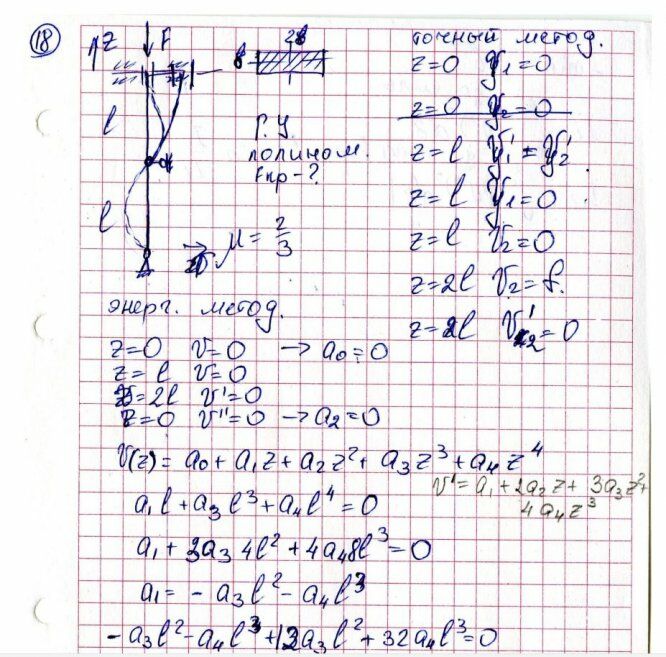 18
z
F
2b
b
l
l
Г.У.
полином.
Fкр-?
μ = 2/3
v
точный метод.
z=0 v₁=0
z=0 v₂=0
z=l v₁' = v₂'
z=l v₁=0
z=l v₂=0
z=2l v₂=f.
z=2l v₂'=0
энерг. метод.
z=0 v=0 → a₀=0
z=l v=0
z=2l v'=0
z=0 v''=0 → a₂=0
v(z) = a₀ + a₁z + a₂z² + a₃z³ + a₄z⁴
v' = a₁ + 2a₂z + 3a₃z² +
4a₄z³
a₁l + a₃l³ + a₄l⁴ = 0
a₁ + 3a₃4l² + 4a₄8l³ = 0
a₁ = - a₃l² - a₄l³
-a₃l² - a₄l³ + 12a₃l² + 32a₄l³ = 0